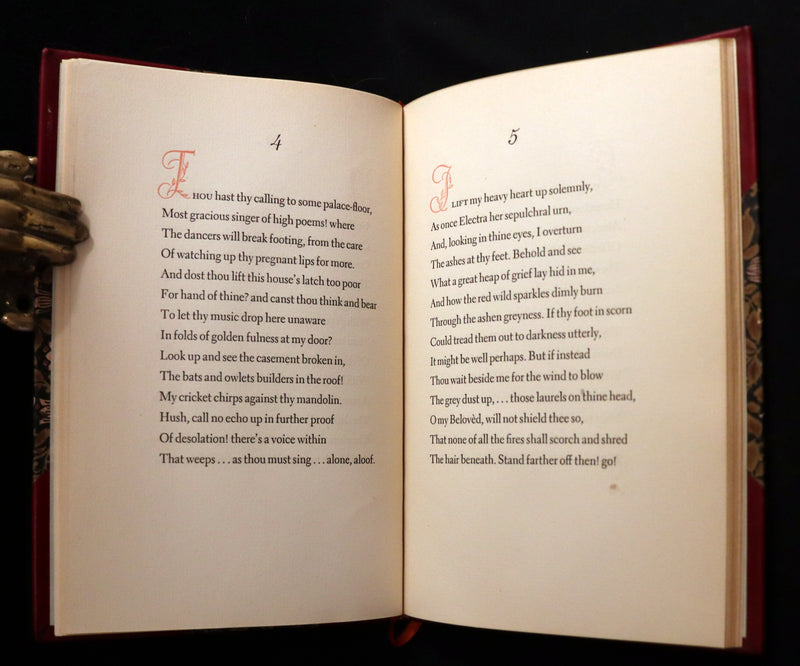 4
THOU hast thy calling to some palace-floor,
Most gracious singer of high poems! where
The dancers will break footing, from the care
Of watching up thy pregnant lips for more.
And dost thou lift this house's latch too poor
For hand of thine? and canst thou think and bear
To let thy music drop here unaware
In folds of golden fulness at my door?
Look up and see the casement broken in,
The bats and owlets builders in the roof!
My cricket chirps against thy mandolin.
Hush, call no echo up in further proof
Of desolation! there's a voice within
That weeps . . . as thou must sing . . . alone, aloof.
5
I LIFT my heavy heart up solemnly,
As once Electra her sepulchral urn,
And, looking in thine eyes, I overturn
The ashes at thy feet. Behold and see
What a great heap of grief lay hid in me,
And how the red wild sparkles dimly burn
Through the ashen greyness. If thy foot in scorn
Could tread them out to darkness utterly,
It might be well perhaps. But if instead
Thou wait beside me for the wind to blow
The grey dust up, . . . those laurels on thine head,
O my Belovèd, will not shield thee so,
That none of all the fires shall scorch and shred
The hair beneath. Stand farther off then! go!